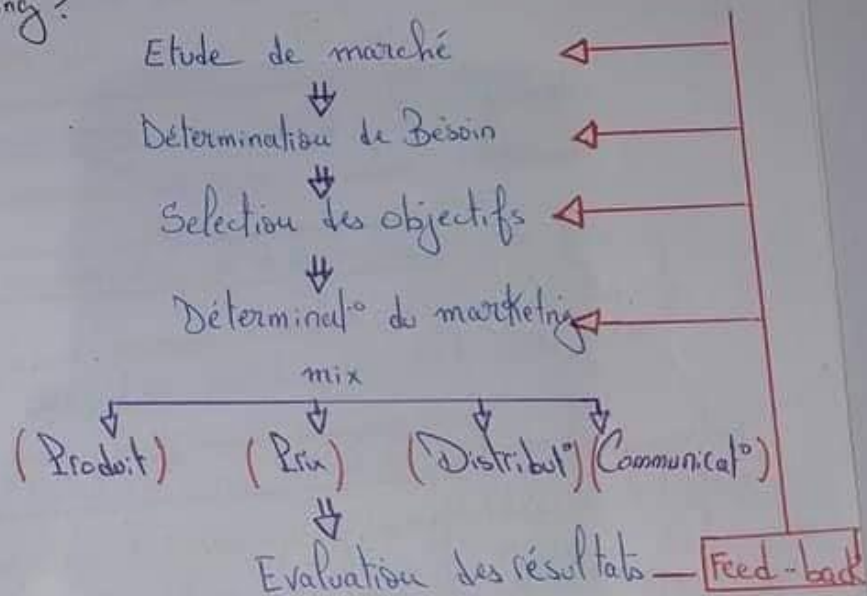 ing :
Etude de marché
Détermination de Besoin
Selection des objectifs
Déterminat° du marketing
mix
(Produit) (Prix) (Distribut°) (Communicat°)
Evaluation des résultats — Feed-back